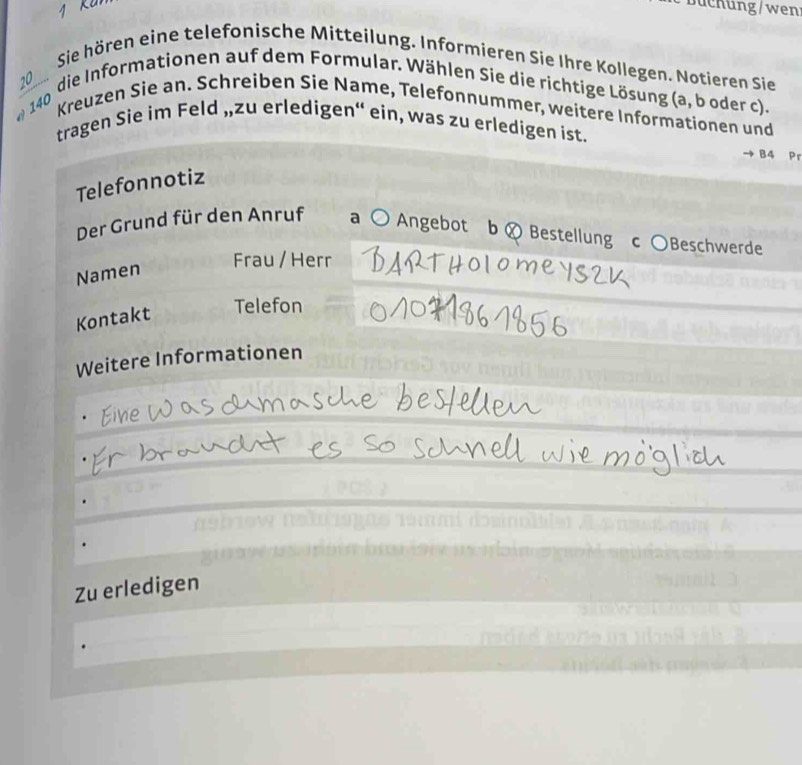 1
Buchung/wen
20 Sie hören eine telefonische Mitteilung. Informieren Sie Ihre Kollegen. Notieren Sie
140 die Informationen auf dem Formular. Wählen Sie die richtige Lösung (a, b oder c).
Kreuzen Sie an. Schreiben Sie Name, Telefonnummer, weitere Informationen und
tragen Sie im Feld „zu erledigen“ ein, was zu erledigen ist.
→ B4 Pr
Telefonnotiz
Der Grund für den Anruf a Angebot b Bestellung c Beschwerde
Namen Frau / Herr BARTHOlOmeYSZK
Kontakt Telefon 01071861856
Weitere Informationen
· Eine Waschmasche bestellen
· Er braucht es so schnell wie möglich
·
·
Zu erledigen
·